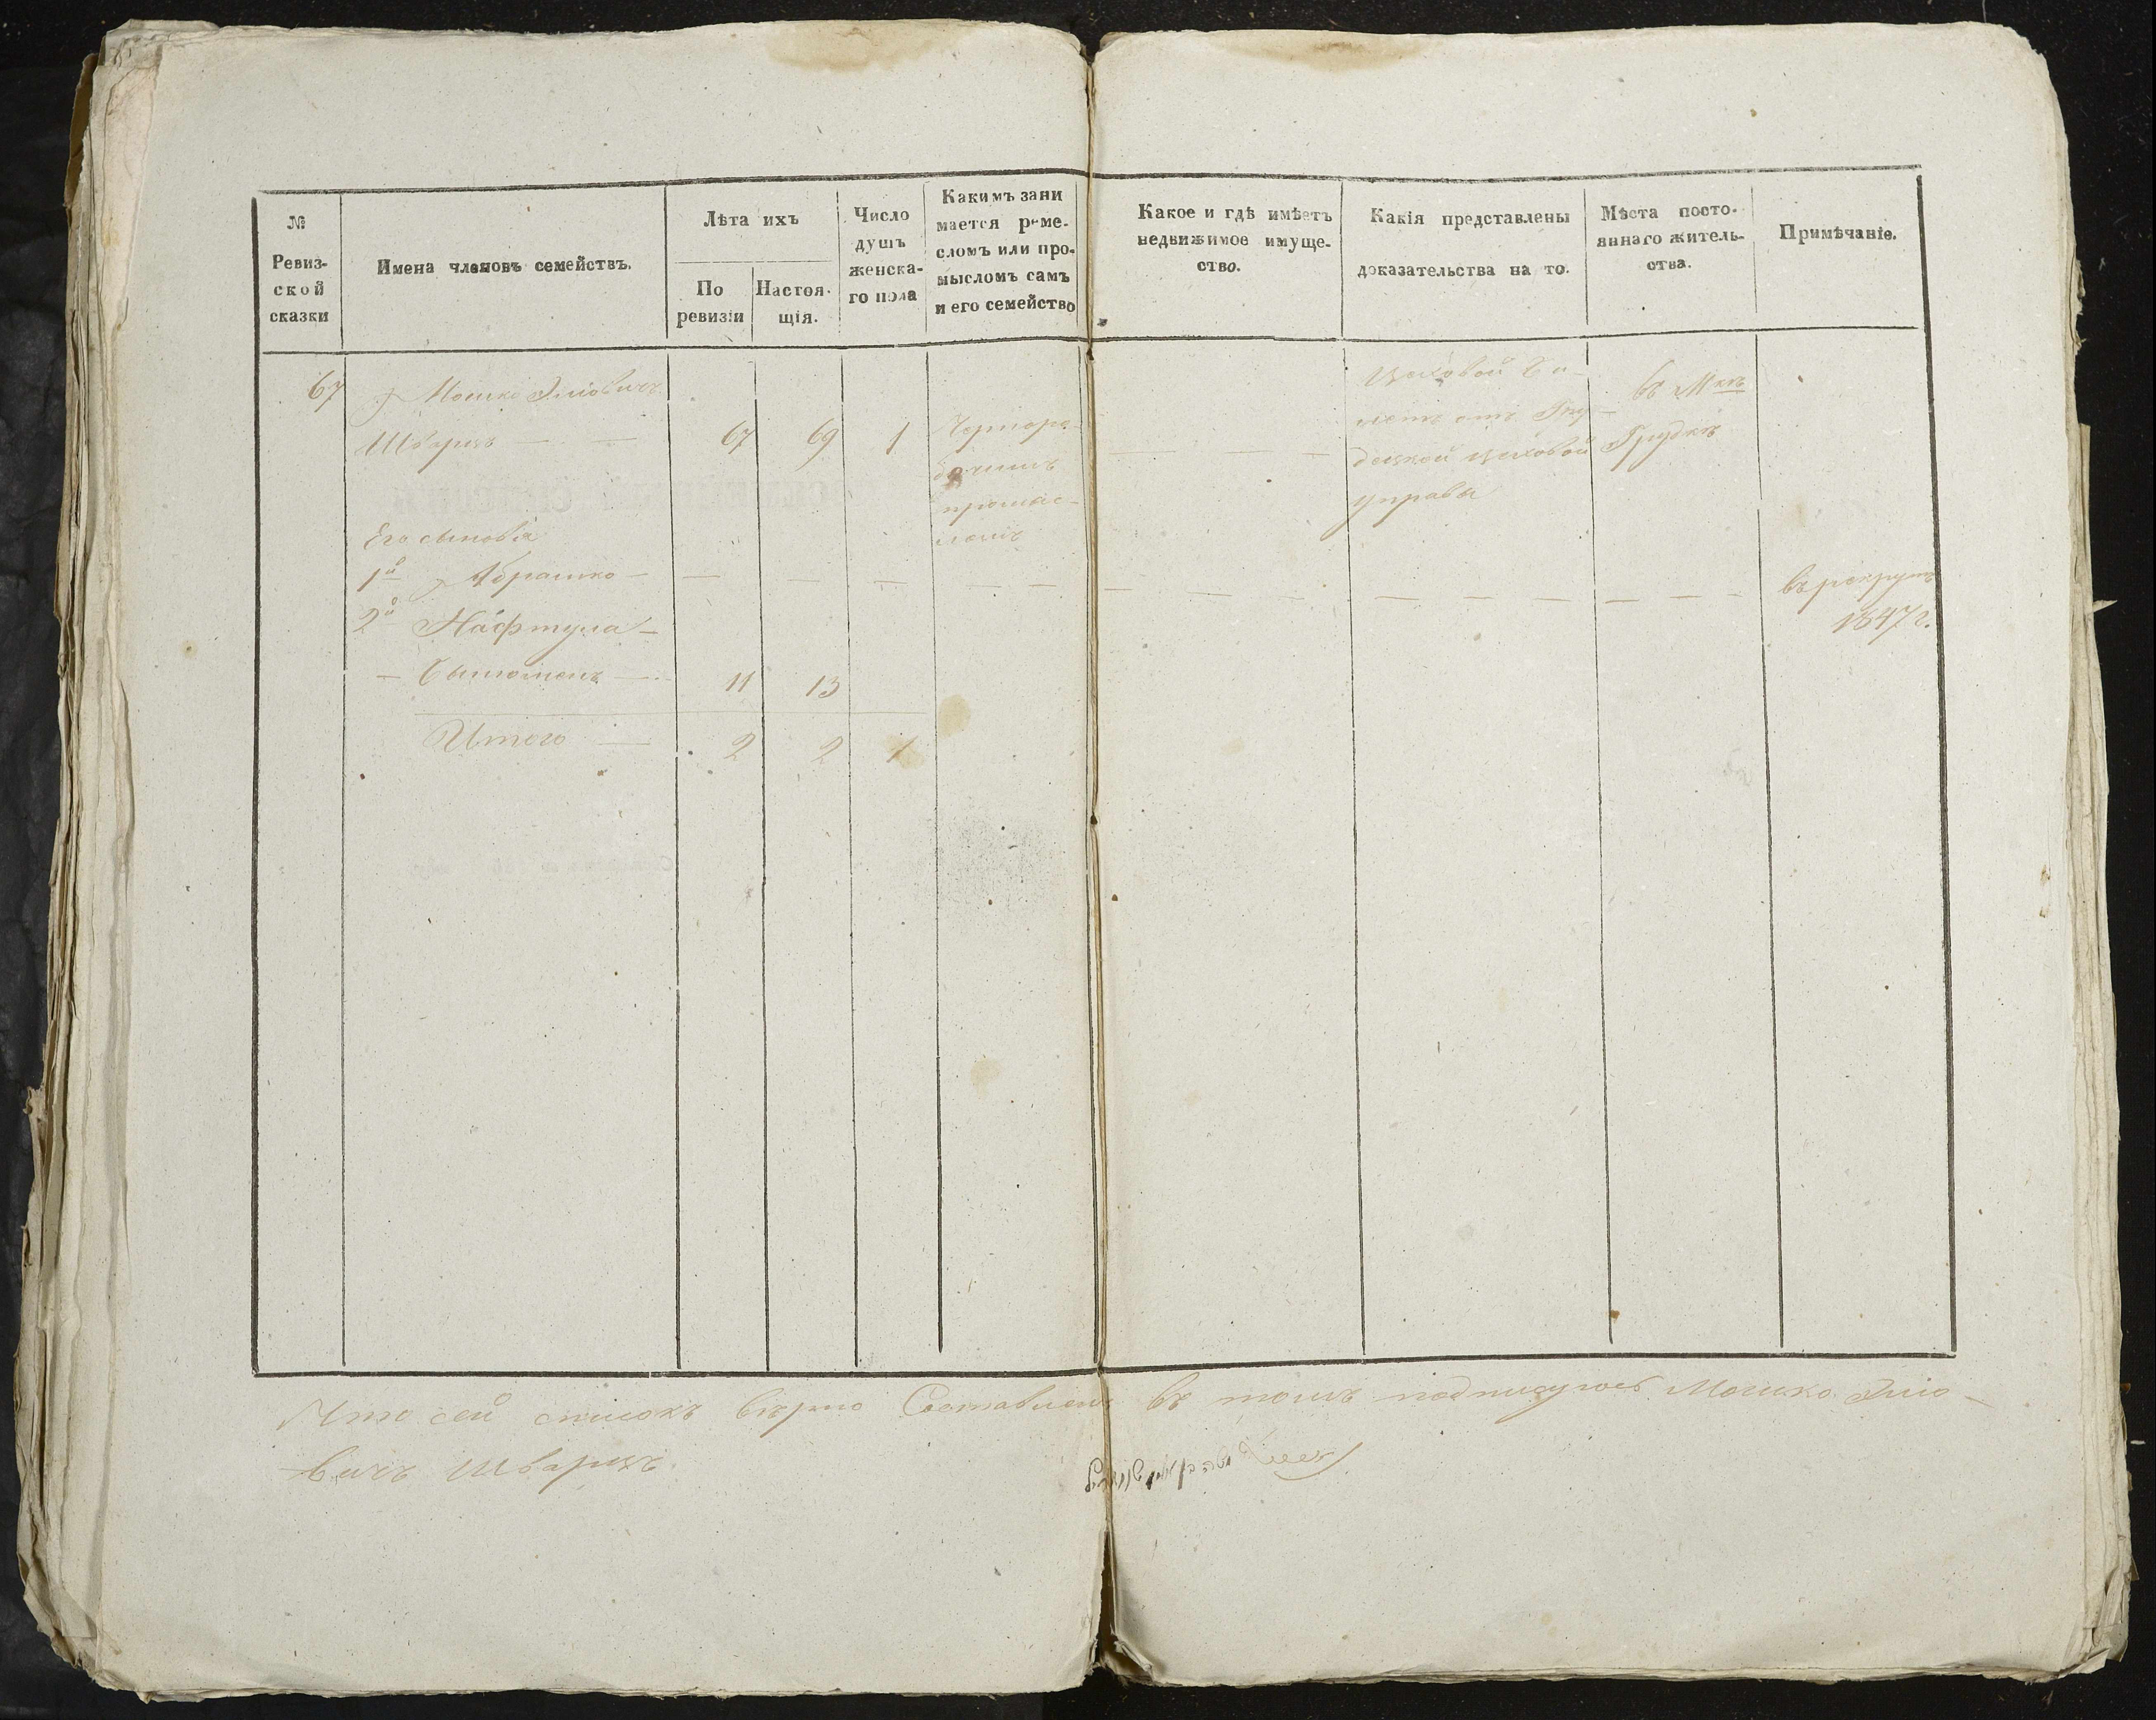 №
Ревиз-
ской
сказки
Имена членовъ семействъ.
Лѣта ихъ
По
ревизіи
Настоя-
щія.
Число
душъ
женска-
го пола
Какимъ зани
мается реме-
сломъ или про-
мысломъ самъ
и его семейство
Какое и гдѣ имѣетъ
недвижимое имуще-
ство.
Какія представлены
доказательства на то.
Мѣста посто-
яннаго житель-
ства.
Примѣчаніе.
67 Мошко
Шварцъ — — 67 69 1 Чернора-
бочимъ
промыс-
ломъ
Цеховой би-
летъ отъ Гру-
децкой цеховой
управы
въ Мкѣ
Грудкѣ
Его сыновья
1й Абрашко — — — — — — — — — — — — — — — въ рекрутъ
1847 г.
2й Нафтула —
— 11 13
Итого — 2 2 1
Что сей списокъ вѣрно Составленъ въ томъ подписуюсь Мошко
вичъ Шварцъ